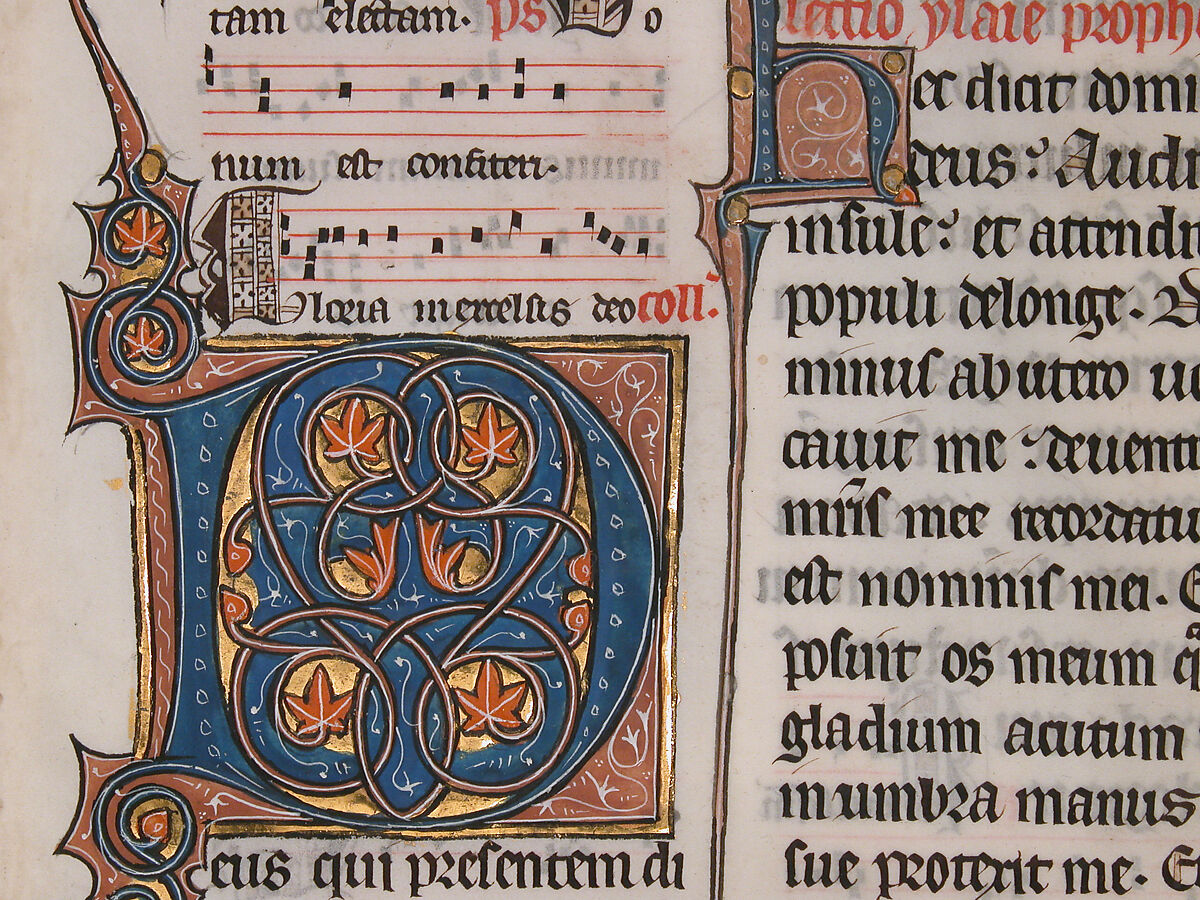 tam electam. ps Bo
num est confiteri.
Gloria in excelsis deo coll.
Deus qui presentem di
lectio ysaie proph
Hec dicit domi
deus: Audi
insule: et attendi
populi de longe.
minus ab utero uo
cauit me: de uentre
mr̄is mee recordatu
est nominis mei. E
posuit os meum q
gladium acutum
in umbra manus
sue protexit me. E